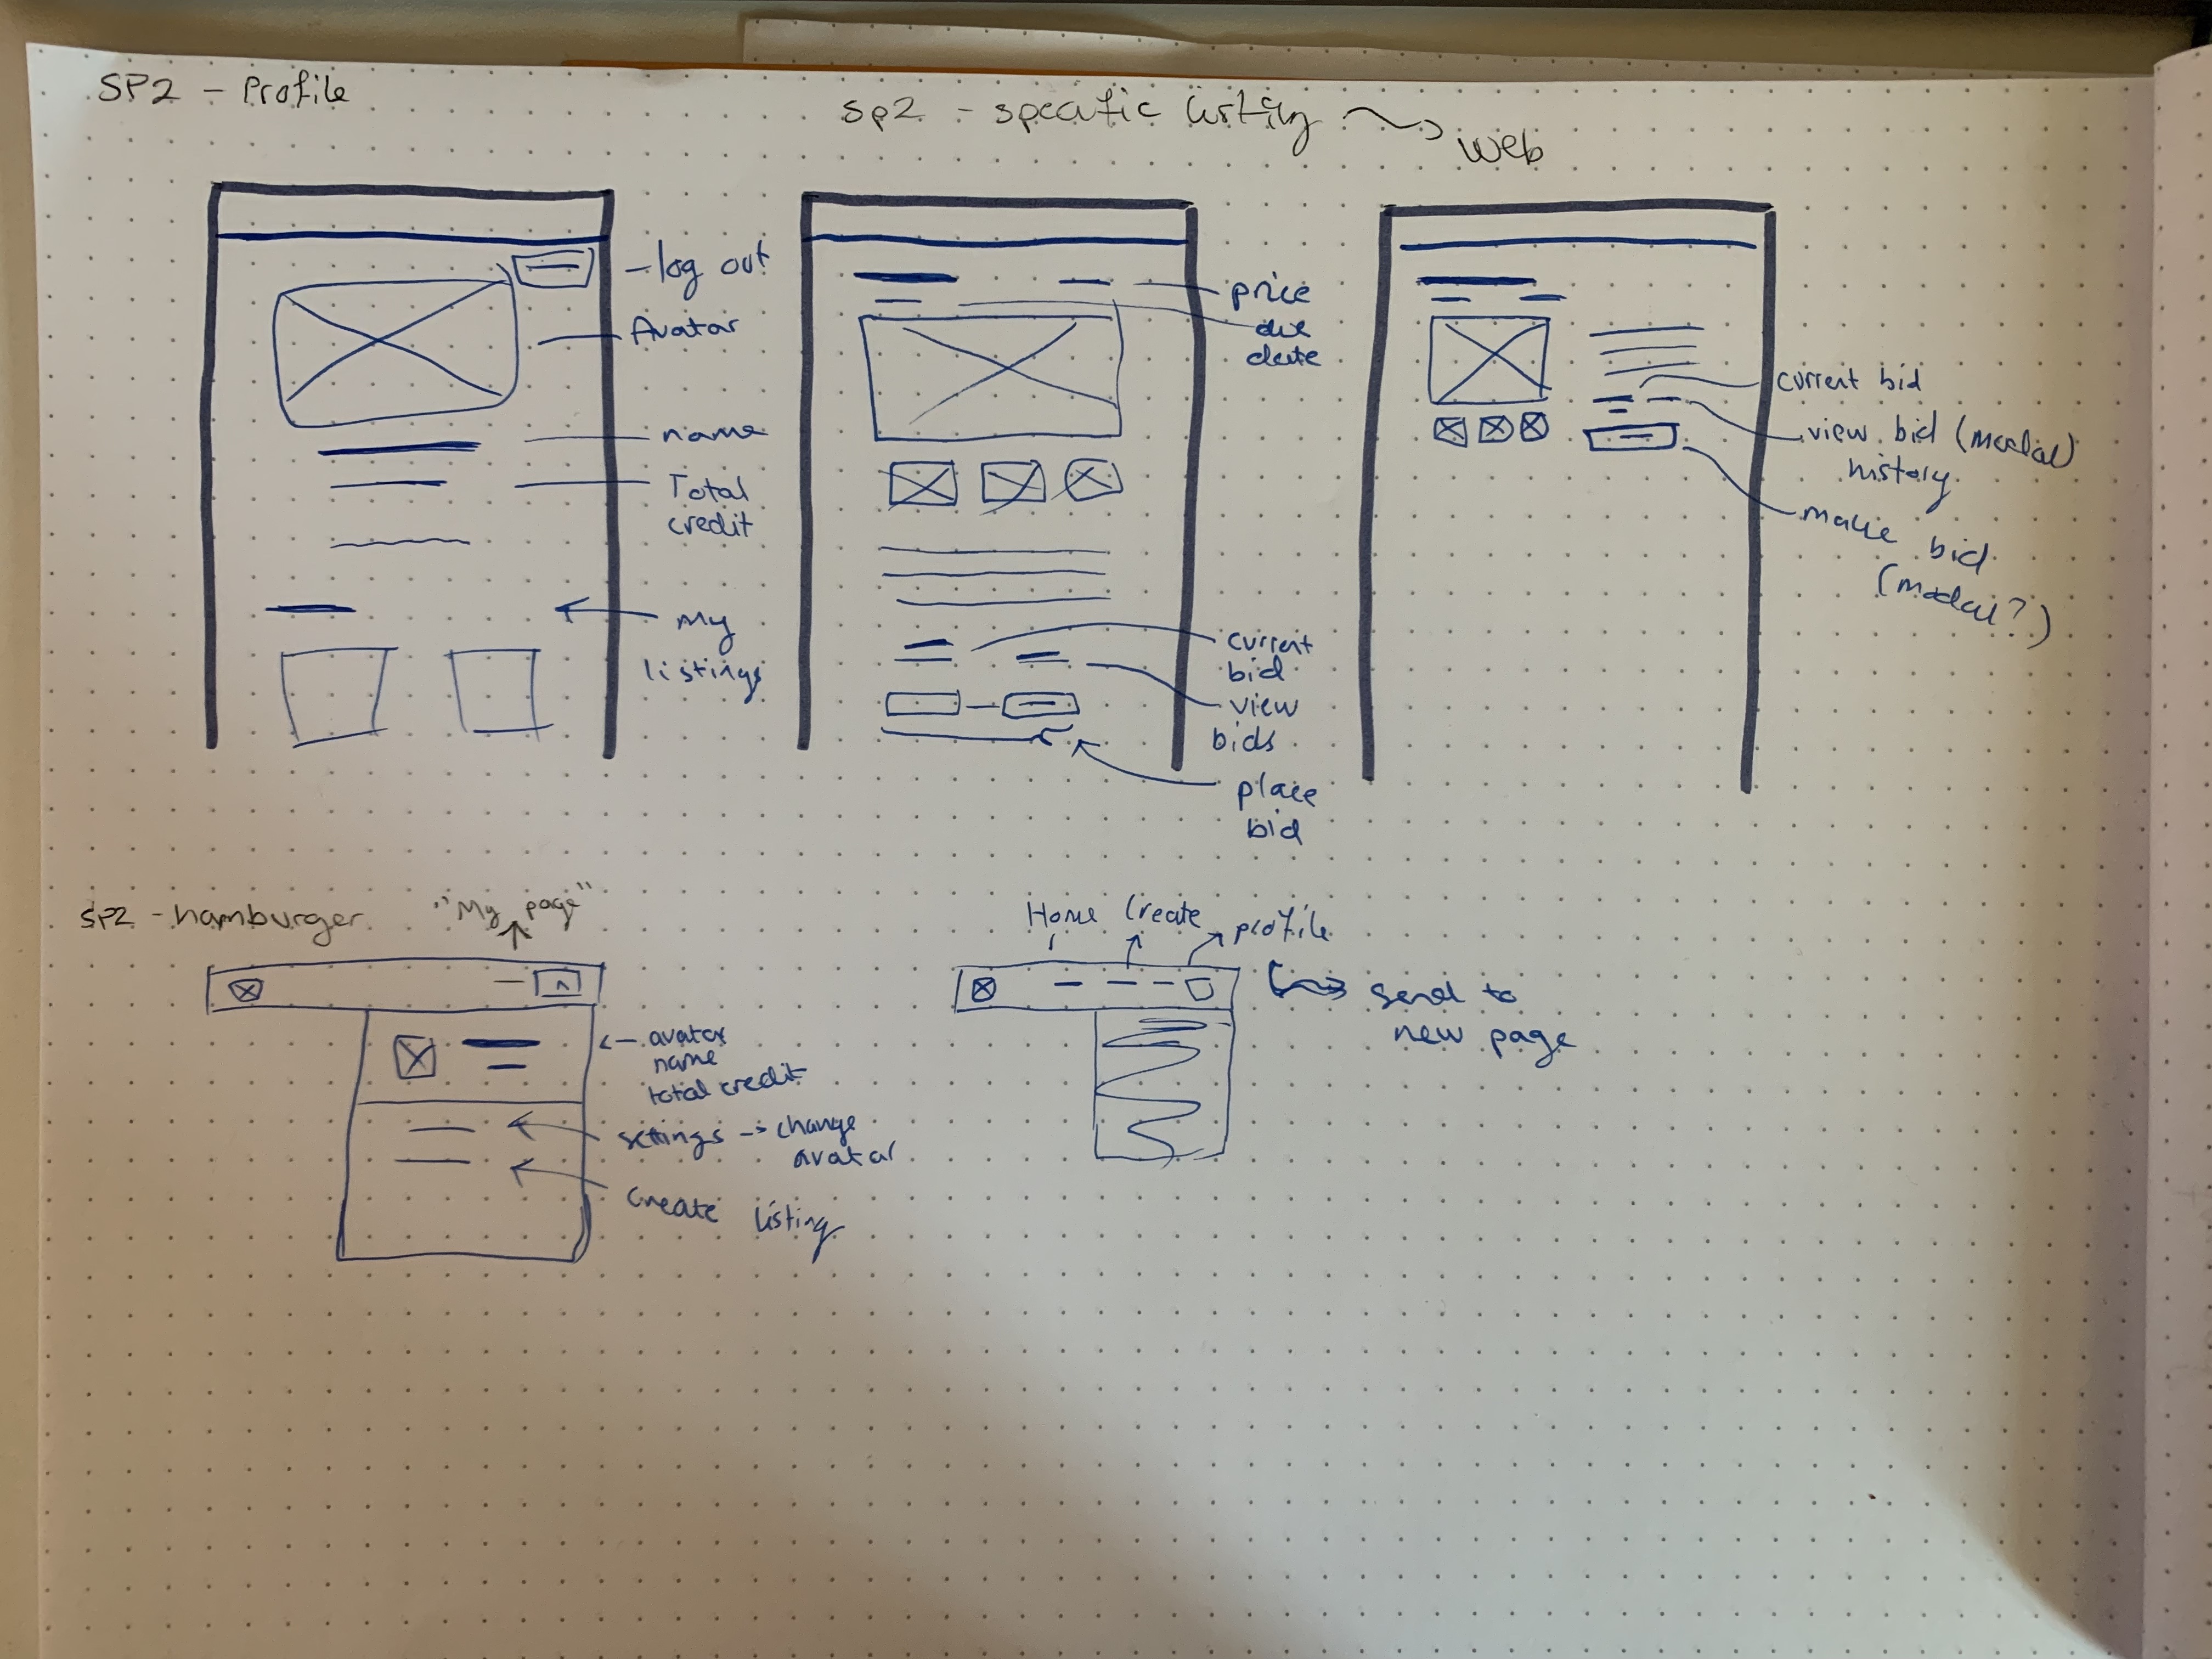 SP2 - Profile
- log out
Avatar
name
Total
credit
My
listings
Sp2 - specific listing
web
price
due
date
current
bid
view
bids
place
bid
current bid
view bid (modal)
history
make bid
(modal?)
SP2 - hamburger
"My page"
avatar
name
total credit
settings -> change
avatar
create listing
Home Create profile
send to
new page